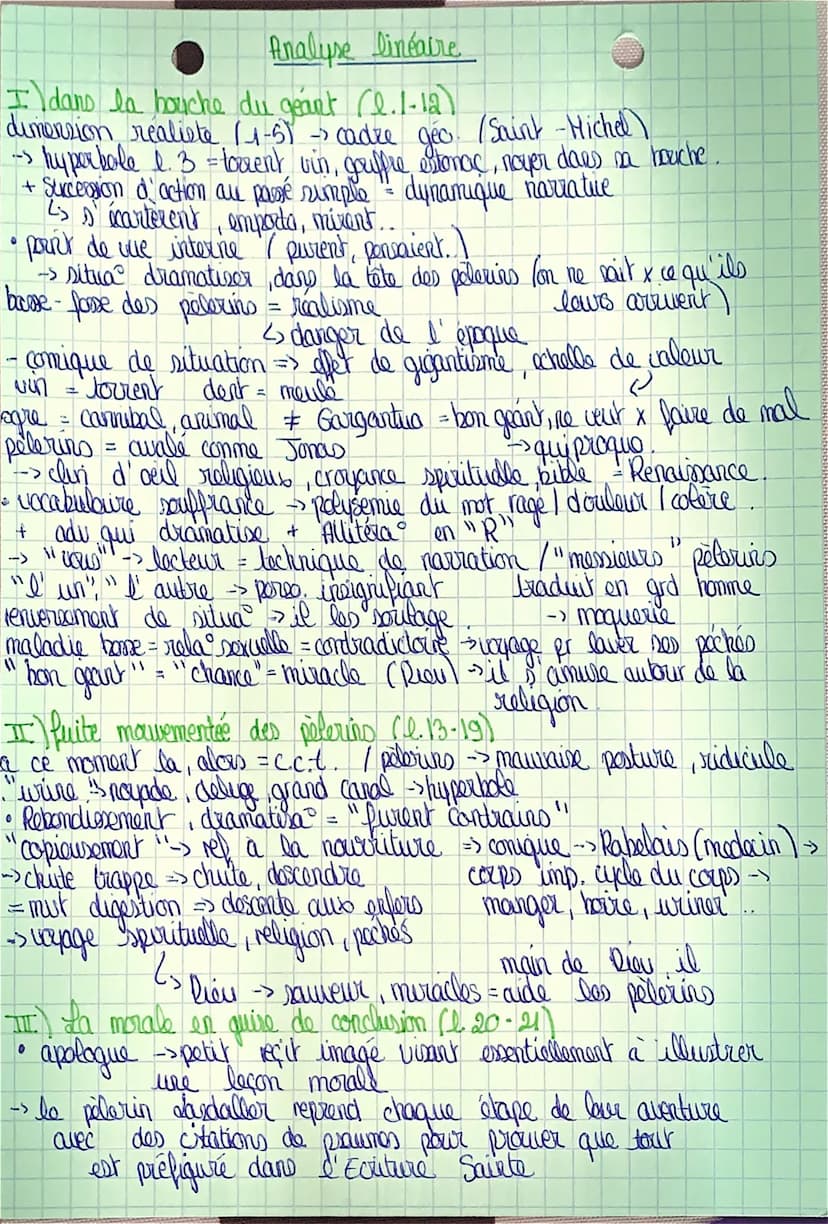 Analyse linéaire
I) dans la bouche du géant (l.1-12)
dimension réaliste (1-5) -> cadre géo. (Saint-Michel)
-> hyperbole l.3 = torrent vin, gouffre estomac, noyer dans sa bouche.
+ succession d'action au passé simple = dynamique narrative
↳ s'écartèrent, emporta, mirent..
• point de vue interne (purent, pensaient.)
-> situa° dramatiser, dans la tête des pèlerins (on ne sait x ce qu'ils
basse-fosse des pèlerins = réalisme leurs arrivent)
↳ danger de l'époque
- comique de situation => effet de gigantisme, échelle de valeur
vin = torrent dent = meule
ogre = cannibal, animal ≠ Gargantua = bon géant, ne veut x faire de mal
pèlerins = avalé comme Jonas -> quiproquo.
-> clin d'oeil religieux, croyance spirituelle, bible = Renaissance.
• vocabulaire souffrance -> polysémie du mot rage / douleur / colère.
+ adv qui dramatise + Allitéra° en "R"
-> "vous" -> lecteur = technique de narration / "messieurs" pèlerins
"l'un", "l'autre -> perso. insignifiant traduit en grd homme
renversement de situa° -> il les soulage -> moquerie
maladie basse = rela° sexuelle = contradictoire -> voyage pr laver ses péchés
"bon géant" = "chance" = miracle (Dieu) -> il s'amuse autour de la
religion
II) fuite mouvementée des pèlerins (l.13-19)
a ce moment la, alors = c.c.t. / pèlerins -> mauvaise posture, ridicule
"urine" noyade, déluge, grand canal -> hyperbole
• Rebondissement, dramatisa° = "furent contrains"
"copieusement" -> ref à la nourriture => comique -> Rabelais (medecin) ->
-> chute trappe => chute, descendre corps imp. cycle du corps ->
= mvt digestion => descente aux enfers manger, boire, uriner..
-> voyage spirituelle, religion, péchés
main de Dieu, il
↳ Dieu -> sauveur, miracles = aide les pèlerins
III) La morale en guise de conclusion (l.20-21)
• apologue -> petit récit imagé visant essentiellement à illustrer
une leçon morale
-> le pèlerin reprend chaque étape de leur aventure
avec des citations de psaumes pour prouver que tout
est préfiguré dans l'Ecriture Sainte